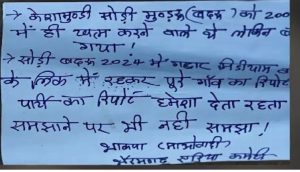 → केशामुण्डी सोड़ी मुन्ड्रा (बदरू) को 200
में ही खत्म करने वाले थे लेकिन
गया!
→ सोड़ी बदरू 2024 में गद्दार
के लिंक में रहकर पूरे गाँव का रिपोर्ट
पार्टी का रिपोर्ट हमेशा देता रहता
समझाने पर भी नहीं समझा!
भाकपा (माओवादी)
भैरमगढ़ एरिया कमेटी